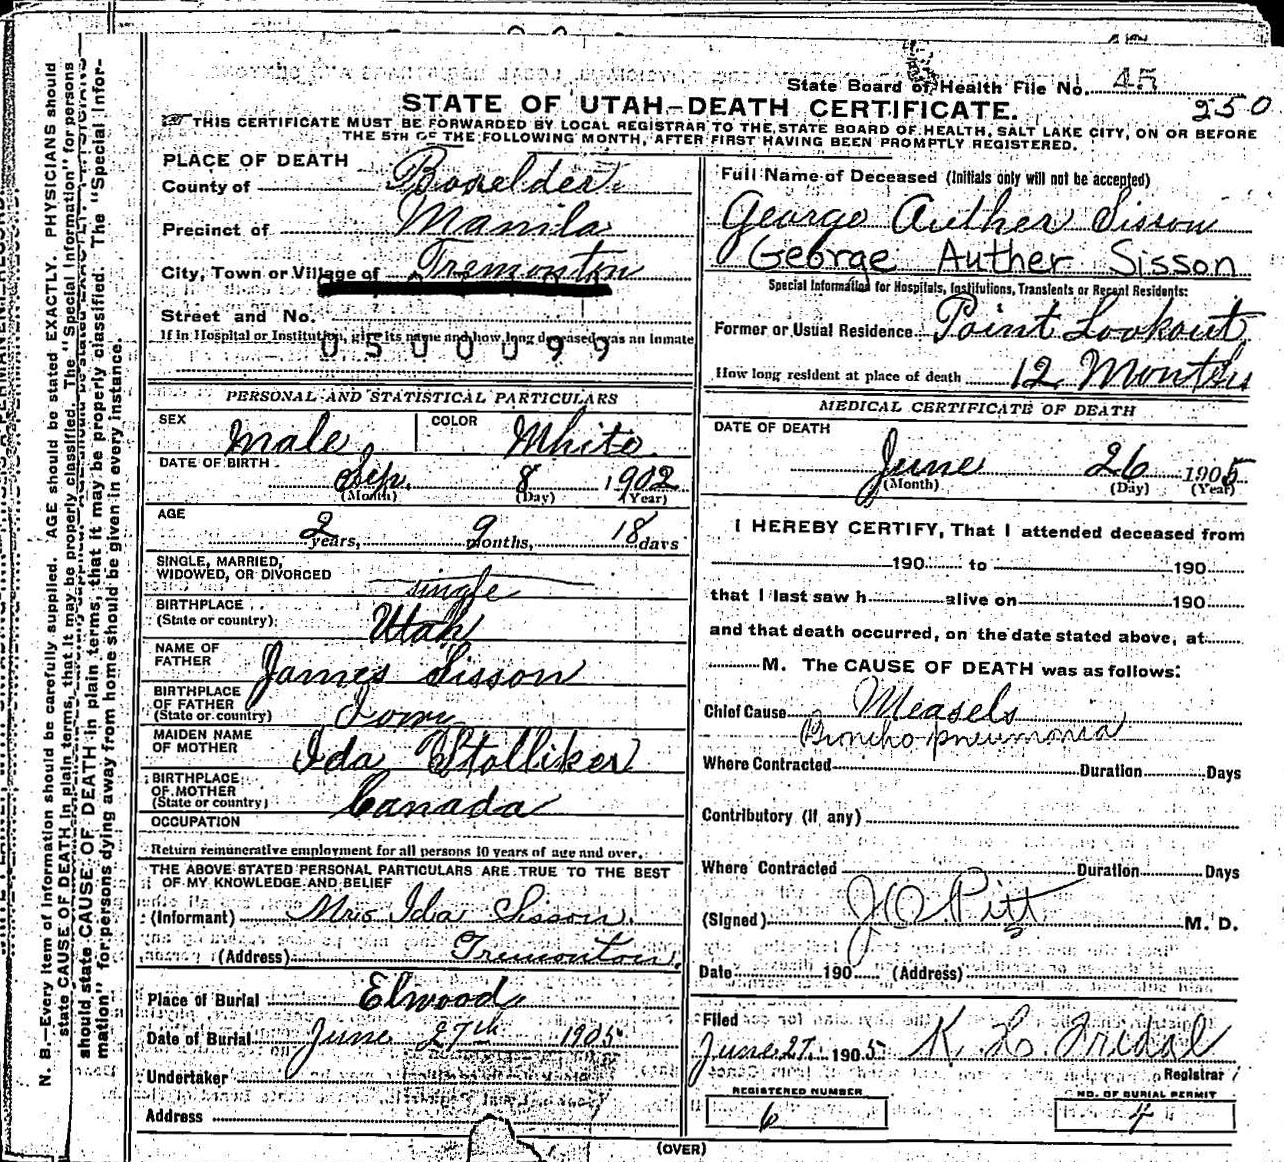 State Board of Health File No. 45
250
STATE OF UTAH—DEATH CERTIFICATE.
THIS CERTIFICATE MUST BE FORWARDED BY LOCAL REGISTRAR TO THE STATE BOARD OF HEALTH, SALT LAKE CITY, ON OR BEFORE
THE 5TH OF THE FOLLOWING MONTH, AFTER FIRST HAVING BEEN PROMPTLY REGISTERED.
PLACE OF DEATH
County of Boxelder
Precinct of Manila
City, Town or Village of Tremonton
Street and No.
If in Hospital or Institution, give its name and how long deceased was an inmate
0500099
PERSONAL AND STATISTICAL PARTICULARS
SEX Male COLOR White
DATE OF BIRTH Sep. 8 1902
(Month) (Day) (Year)
AGE
2 years, 9 months, 18 days
SINGLE, MARRIED,
WIDOWED, OR DIVORCED single
BIRTHPLACE
(State or country) Utah
NAME OF
FATHER James Sisson
BIRTHPLACE
OF FATHER
(State or country) Iowa
MAIDEN NAME
OF MOTHER Ida Stolliker
BIRTHPLACE
OF MOTHER
(State or country) Canada
OCCUPATION
Return remunerative employment for all persons 10 years of age and over.
THE ABOVE STATED PERSONAL PARTICULARS ARE TRUE TO THE BEST
OF MY KNOWLEDGE AND BELIEF
(Informant) Mrs Ida Sisson.
(Address) Tremonton.
Place of Burial Elwood
Date of Burial June 27th 1905
Undertaker
Address
Full Name of Deceased (Initials only will not be accepted)
George Auther Sisson
George Auther Sisson
Special Information for Hospitals, Institutions, Transients or Recent Residents:
Former or Usual Residence Point Lookout
How long resident at place of death 12 Months
MEDICAL CERTIFICATE OF DEATH
DATE OF DEATH
June 26 1905
(Month) (Day) (Year)
I HEREBY CERTIFY, That I attended deceased from
190 to 190
that I last saw h alive on 190
and that death occurred, on the date stated above, at
M. The CAUSE OF DEATH was as follows:
Chief Cause Measels
Broncho pneumonia
Where Contracted Duration Days
Contributory (if any)
Where Contracted Duration Days
(Signed) J O Pitt M. D.
Date 190 (Address)
Filed
June 27. 1905 K. H. Fridal
Registrar
REGISTERED NUMBER
6
NO. OF BURIAL PERMIT
4
(OVER)
N. B.—Every item of information should be carefully supplied. AGE should be stated EXACTLY. PHYSICIANS should
state CAUSE OF DEATH in plain terms, that it may be properly classified. The "Special Information" for persons
should state CAUSE OF DEATH in plain terms, that it may be properly classified. The "Special Infor-
mation" for persons dying away from home should be given in every instance.